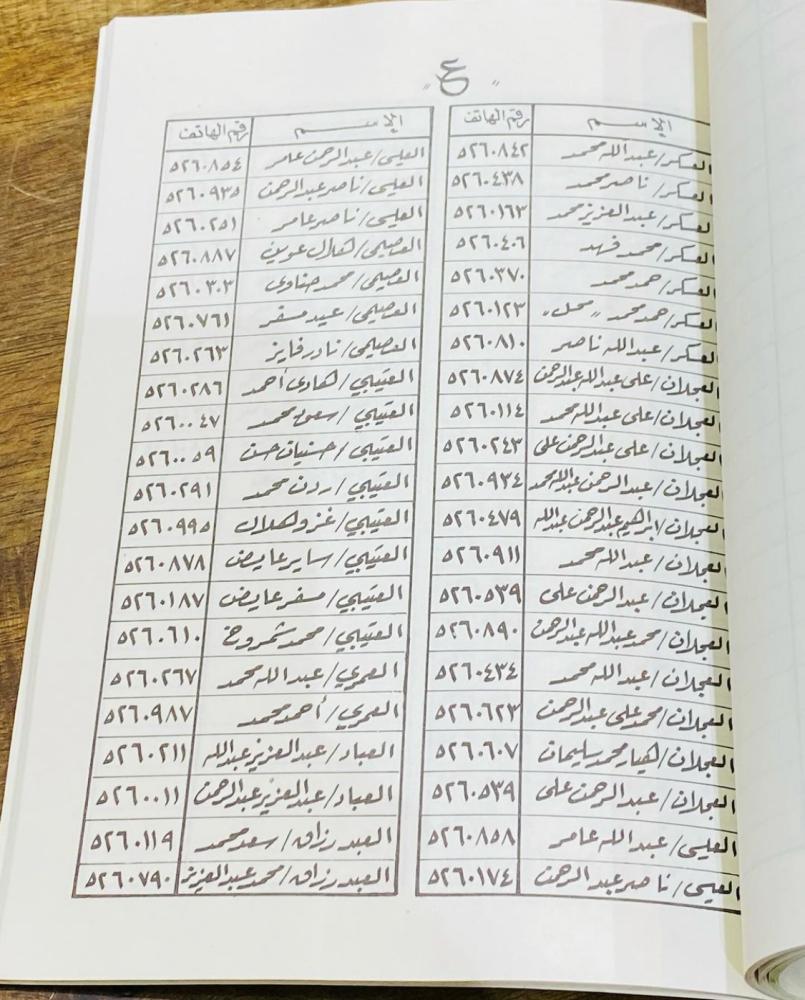 "ع"
الإسم رقم الهاتف
العسكر/عبدالله محمد ٥٢٦٠٨٤٢
العسكر/ناصر محمد ٥٢٦٠٤٣٨
العسكر/عبدالعزيز محمد ٥٢٦٠١٦٣
العسكر/محمد فهد ٥٢٦٠٤٠٦
العسكر/حمد محمد ٥٢٦٠٣٧٠
العسكر/حمد محمد "محل" ٥٢٦٠١٢٣
العسكر/عبدالله ناصر ٥٢٦٠٨١٠
العجلان/على عبدالله عبدالرحمن ٥٢٦٠٨٧٤
العجلان/على عبدالله محمد ٥٢٦٠١١٤
العجلان/على عبدالرحمن على ٥٢٦٠٢٤٣
العجلان/عبدالرحمن عبدالله محمد ٥٢٦٠٩٣٤
العجلان/ابراهيم عبدالرحمن عبدالله ٥٢٦٠٤٧٩
العجلان/عبدالله محمد ٥٢٦٠٩١١
العجلان/عبدالرحمن على ٥٢٦٠٥٣٩
العجلان/محمد عبدالله عبدالرحمن ٥٢٦٠٨٩٠
العجلان/عبدالله محمد ٥٢٦٠٤٣٤
العجلان/محمد على عبدالرحمن ٥٢٦٠٦٢٣
العجلان/هيار محمد سليمان ٥٢٦٠٦٠٧
العجلان/عبدالرحمن على ٥٢٦٠٥٣٩
العليى/عبدالله عامر ٥٢٦٠٨٥٨
العليى/ناصر عبدالرحمن ٥٢٦٠١٧٤
الإسم رقم الهاتف
العليى/عبدالرحمن عامر ٥٢٦٠٨٥٤
العليى/ناصر عبدالرحمن ٥٢٦٠٩٣٥
العليى/ناصر عامر ٥٢٦٠٢٥١
العصيمى/هلال عوين ٥٢٦٠٨٨٧
العصيمى/محمد ٥٢٦٠٣٠٣
العصيمى/عيد مسفر ٥٢٦٠٧٦١
العصيمى/نادر فايز ٥٢٦٠٢٦٣
العتيبي/هادى أحمد ٥٢٦٠٢٨٦
العتيبي/سعود محمد ٥٢٦٠٠٤٧
العتيبي/حسنيان حسن ٥٢٦٠٠٥٩
العتيبي/ردن محمد ٥٢٦٠٢٩١
العتيبي/غزو هلال ٥٢٦٠٩٩٥
العتيبي/ساير عايض ٥٢٦٠٨٧٨
العتيبي/مسفر عايض ٥٢٦٠١٨٧
العتيبي/محمد شمروخ ٥٢٦٠٦١٠
العمري/عبدالله محمد ٥٢٦٠٢٦٧
العمري/أحمد محمد ٥٢٦٠٩٨٧
العباد/عبدالعزيز عبدالله ٥٢٦٠٢١١
العباد/عبدالعزيز عبدالرحمن ٥٢٦٠٠١١
العبدرزاق/سعد محمد ٥٢٦٠١١٩
العبدرزاق/محمد عبدالعزيز ٥٢٦٠٧٩٠